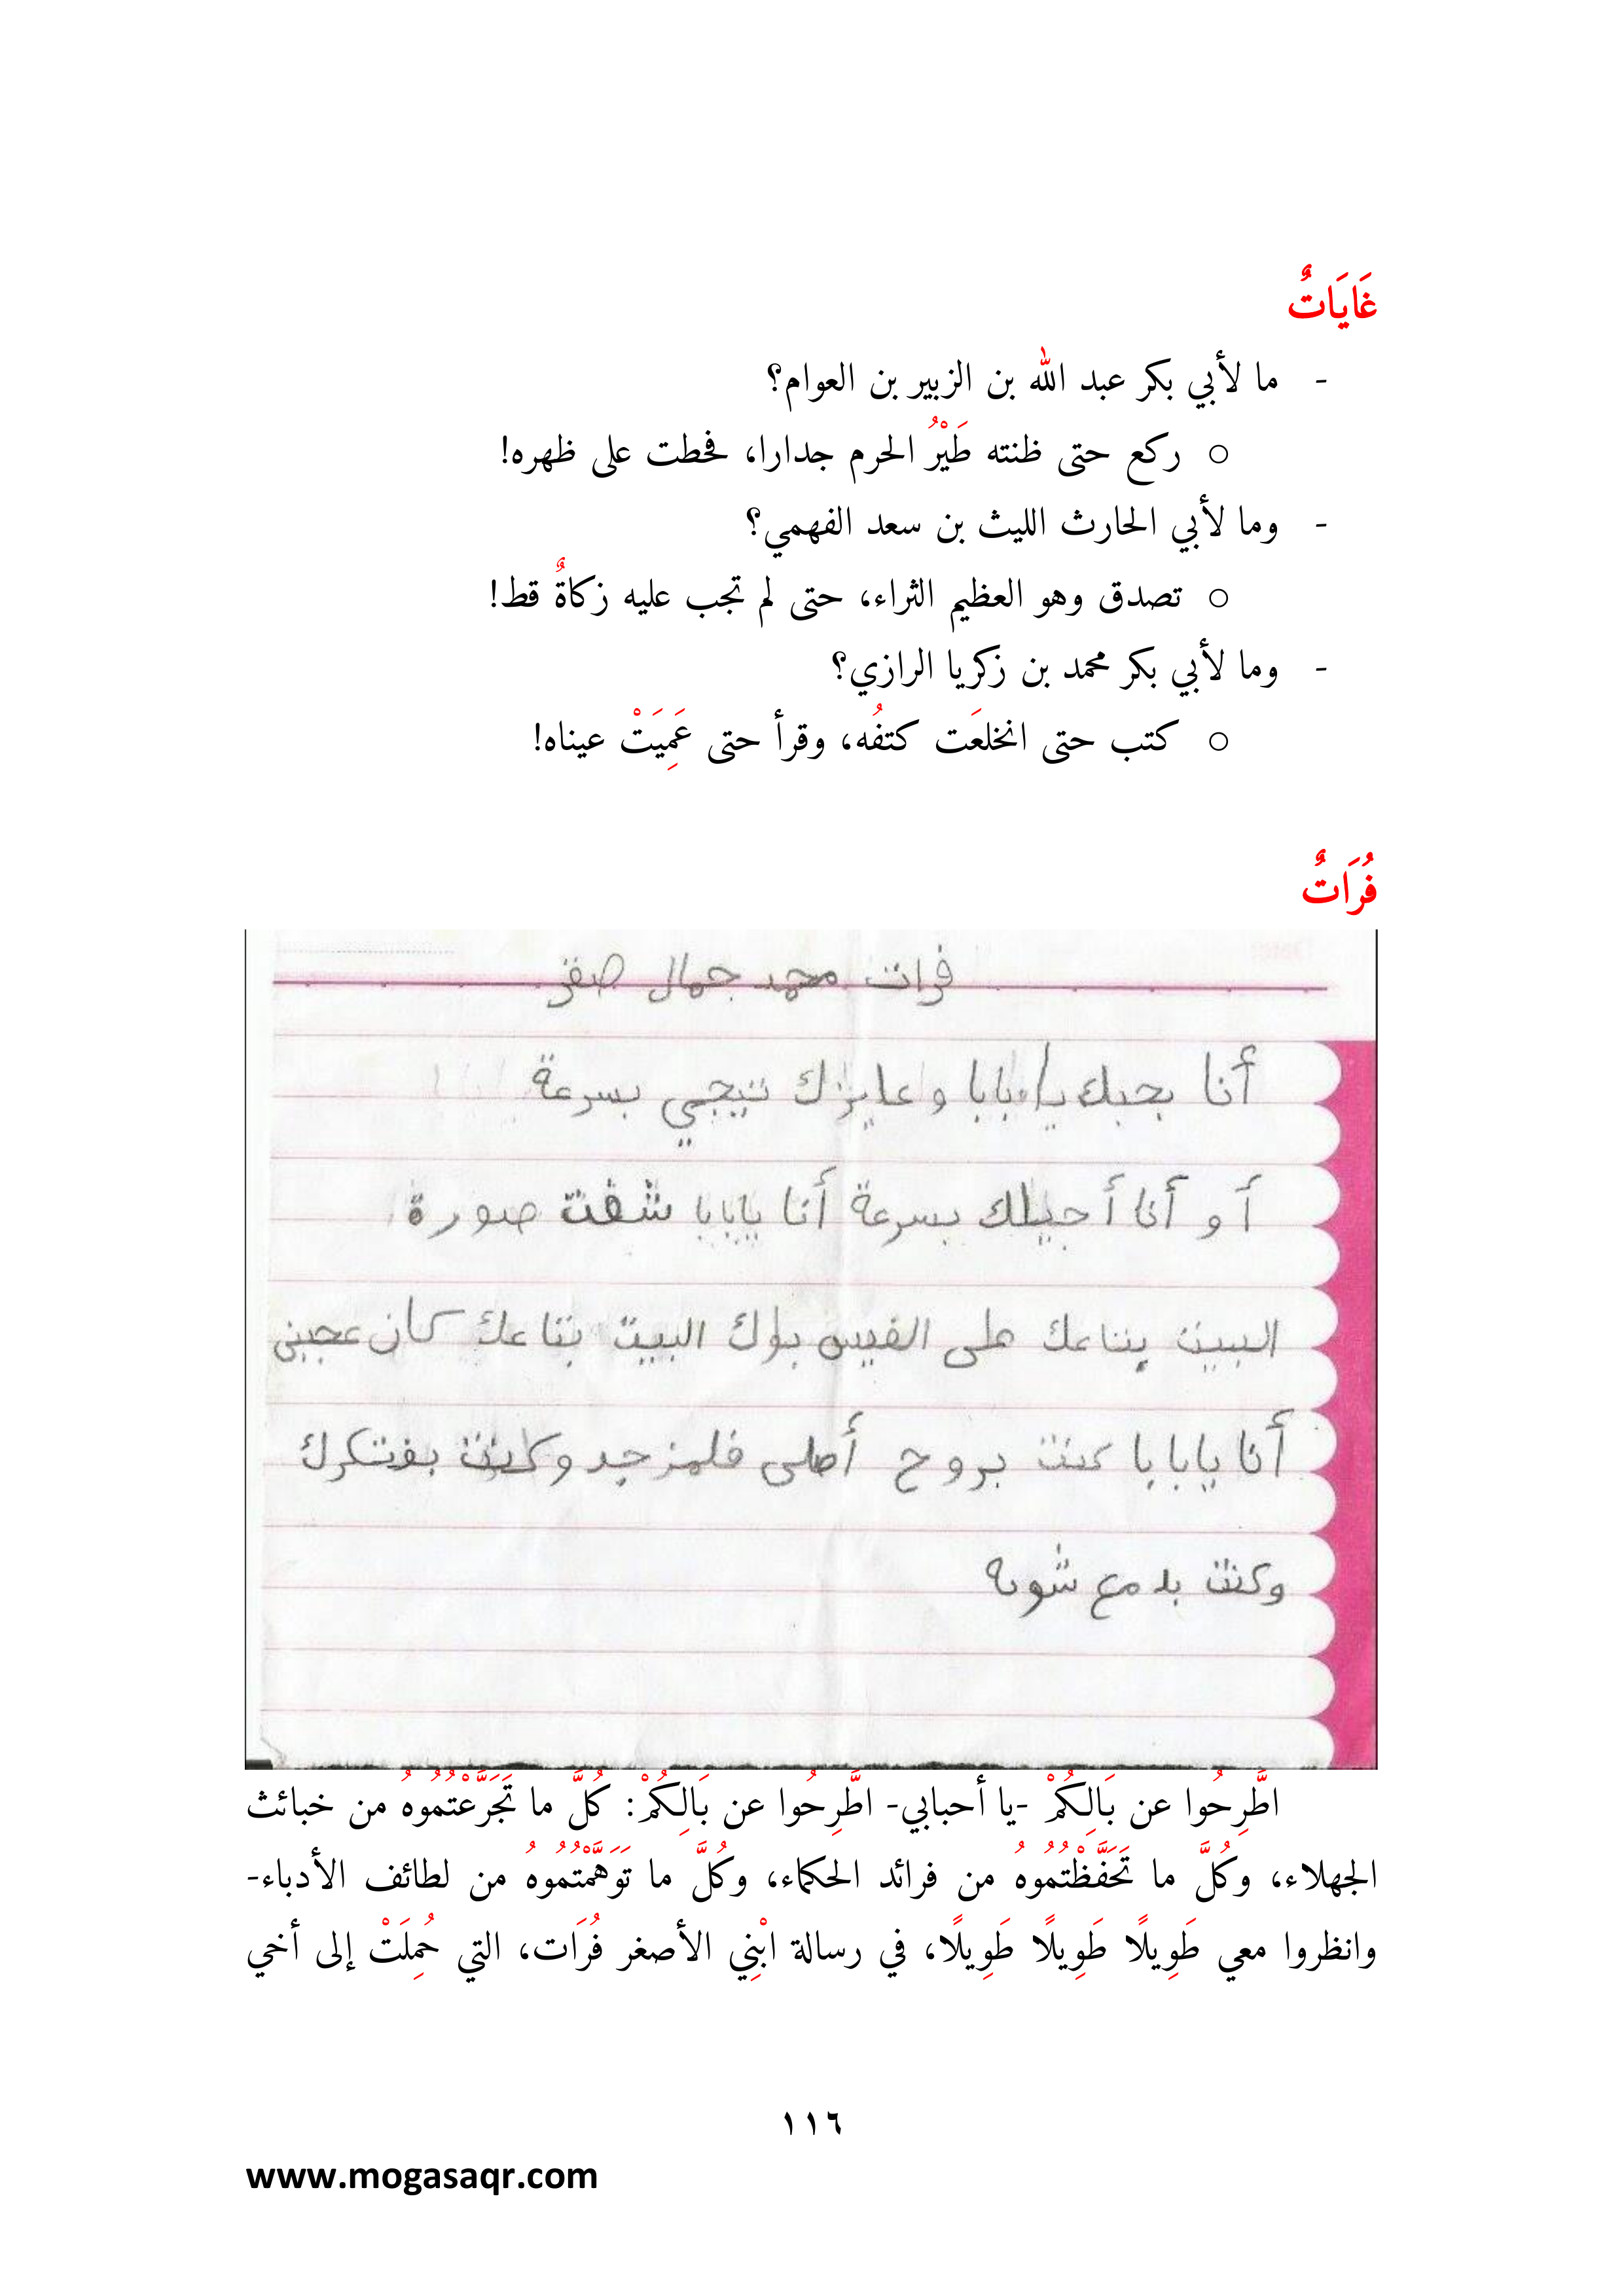 غَايَاتٌ
- ما لأبي بكر عبد الله بن الزبير بن العوام؟
o ركع حتى ظنته طَيْرُ الحرم جدارا، فحطت على ظهره!
- وما لأبي الحارث الليث بن سعد الفهمي؟
o تصدق وهو العظيم الثراء، حتى لم تجب عليه زكاةٌ قط!
- وما لأبي بكر محمد بن زكريا الرازي؟
o كتب حتى انخلعَت كتفُه، وقرأ حتى عَمِيَتْ عيناه!
فُرَاتٌ
فرات محمد جمال صقر
أنا بحبك يا بابا وعايزك تيجي بسرعة
أو أنا أجيلك بسرعة أنا يابابا شفت صورة
البيت بتاعك على الفيس بوك البيت بتاعك كان عجبني
أنا يابابا كنت بروح أصلى فلمزجد وكنت بفتكرك
وكنت بدمع شويه
اطَّرِحُوا عن بَالِكُمْ -يا أحبابي- اطَّرِحُوا عن بَالِكُمْ: كُلَّ ما تَجَرَّعْتُمُوهُ من خبائث
الجهلاء، وكُلَّ ما تَحَفَّظْتُمُوهُ من فرائد الحكماء، وكُلَّ ما تَوَهَّمْتُمُوهُ من لطائف الأدباء-
وانظروا معي طَوِيلًا طَوِيلًا طَوِيلًا، في رسالة ابْنِي الأصغر فُرَات، التي حُمِلَتْ إلى أخي
١١٦
www.mogasaqr.com